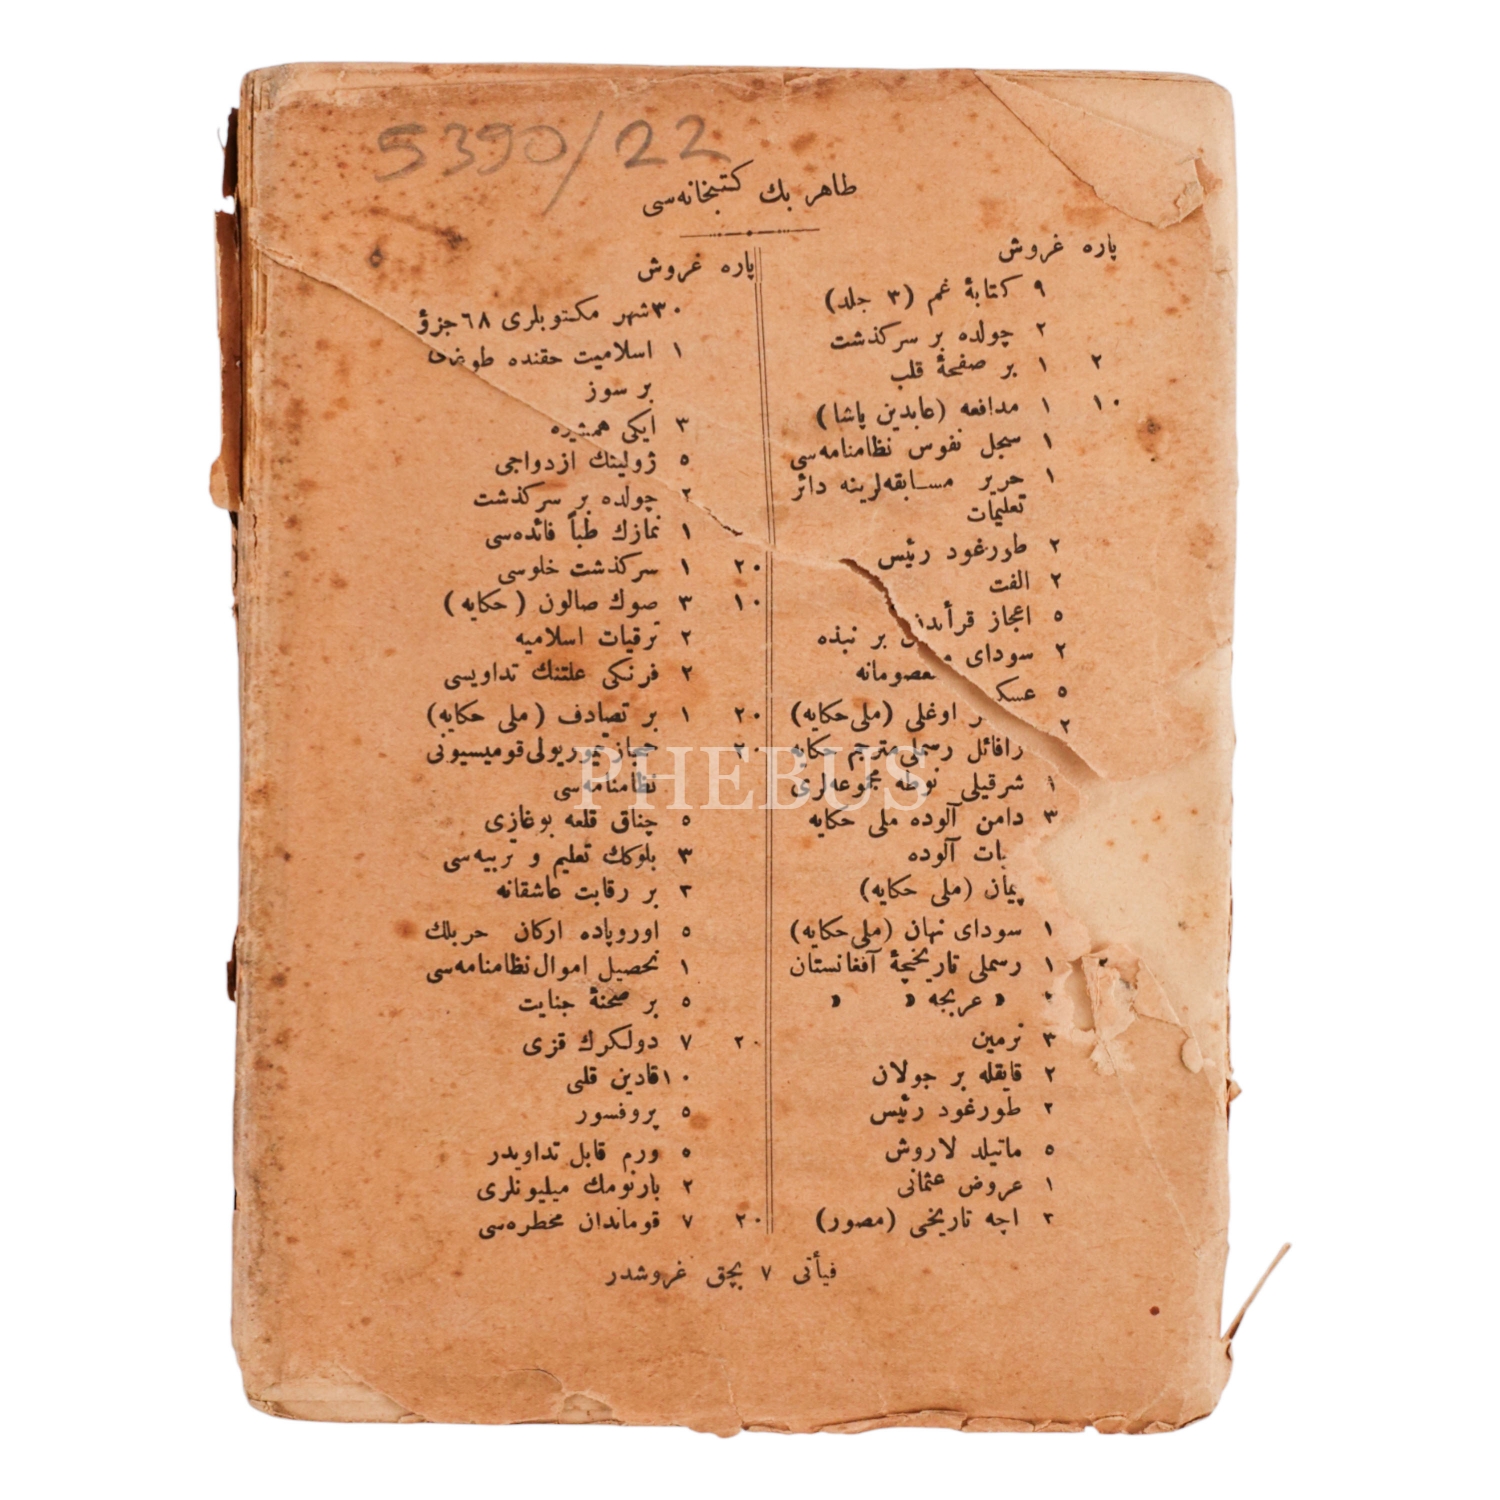 5390/22
طاهر بك كتبخانه‌سى
پاره غروش
٩ كتابۀ غم (٣ جلد)
٢ چولده بر سركذشت
٢ ١ بر صفحۀ قلب
١٠ ١ مدافعه (عابدين پاشا)
١ سجل نفوس نظامنامه‌سى
١ حرير مسابقه‌لرينه دائر
تعليمات
٢ طورغود رئيس
٢ الفت
٥ اعجاز قرأندن بر نبذه
٢ سوداى معصومانه
٥ عسكر اوغلى (ملى حكايه)
٢ رافائل رسملى مترجم حكايه
١ شرقيلى نوطه مجموعه‌لرى
٣ دامن آلوده ملى حكايه
آلوده
پيمان (ملى حكايه)
١ سوداى نهان (ملى حكايه)
٢ ١ رسملى تاريخچۀ آفغانستان
٢ » عربجه » »
٣ نرمين
٢ قايقله بر جولان
٢ طورغود رئيس
٥ ماتيلد لاروش
١ عروض عثمانى
٣ اچه تاريخى (مصور)
پاره غروش
٣٠ شهر مكتوبلرى ٦٨ جزؤ
١ اسلاميت حقنده طوغرى
بر سوز
٣ ايكى همشيره
٥ ژوليتك ازدواجى
٢ چولده بر سركذشت
١ نمازك طباً فائده‌سى
٢٠ ١ سركذشت خلوسى
١٠ ٣ صوك صالون (حكايه)
٢ ترقيات اسلاميه
٢ فرنكى علتنك تداويسى
٢٠ ١ بر تصادف (ملى حكايه)
٢٠ حجاز تيموريولى قوميسيونى
نظامنامه‌سى
٥ چناق قلعه بوغازى
٣ بلوكك تعليم و تربيه‌سى
٣ بر رقابت عاشقانه
٥ اوروپاده اركان حربلك
١ تحصيل اموال نظامنامه‌سى
٥ بر صحنۀ جنايت
٢٠ ٧ دولكرك قزى
١٠ قادين قلبى
٥ پروفسور
٥ ورم قابل تداويدر
٢ بارنومك ميليونلرى
٢٠ ٧ قوماندان مخطره‌سى
فيأتى ٧ بچق غروشدر
PHEBUS